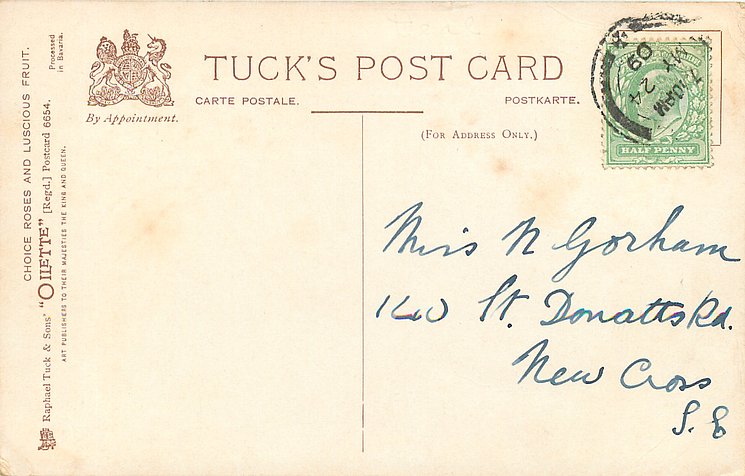 CHOICE ROSES AND LUSCIOUS FRUIT.
Processed
in Bavaria.
Raphael Tuck & Sons' "OILETTE" [Regd.] Postcard 6654.
ART PUBLISHERS TO THEIR MAJESTIES THE KING AND QUEEN.
By Appointment.
TUCK'S POST CARD
CARTE POSTALE.
POSTKARTE.
(FOR ADDRESS ONLY.)
7.10AM
MY 24
09
HALF PENNY
Miss N Gorham
140 St. Donatts Rd.
New Cross
S.E